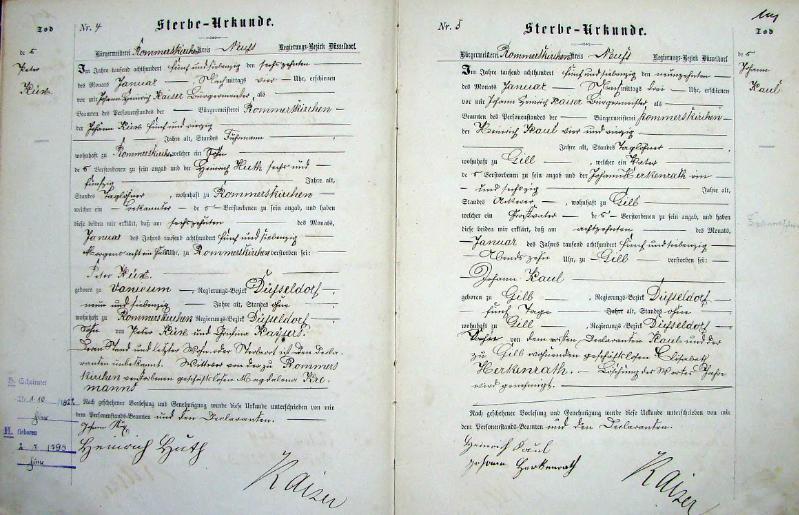 Tod
des
Peter
Kux
Nr. 4 Sterbe-Urkunde.
Bürgermeisterei Rommerskirchen Kreis Neuß Regierungs-Bezirk Düsseldorf.
Im Jahre tausend achthundert fünf und siebenzig den sechszehnten
des Monats Januar Nachmittags vier Uhr, erschienen
vor mir Johann Heinrich Kaiser Bürgermeister, als
Beamten des Personenstandes der Bürgermeisterei Rommerskirchen
der Johann Kux fünf und vierzig
Jahre alt, Standes Fuhrmann
wohnhaft zu Rommerskirchen welcher ein Sohn
des Verstorbenen zu sein angab und der Heinrich Huth sechs und
fünfzig Jahre alt,
Standes Taglöhner, wohnhaft zu Rommerskirchen
welcher ein Bekannter des Verstorbenen zu sein angab, und haben
diese beiden mir erklärt, daß am sechszehnten des Monats
Januar des Jahres tausend achthundert fünf und siebenzig
Morgens acht ein halb Uhr, zu Rommerskirchen verstorben sei:
Peter Kux
geboren zu Vanikum, Regierungs-Bezirk Düsseldorf,
neun und siebenzig Jahre alt, Standes ohne
wohnhaft zu Rommerskirchen Regierungs-Bezirk Düsseldorf,
Sohn von Peter Kux und
Stand und letzter Wohn oder Sterbeort ist den Decla-
ranten unbekannt. Wittwer von der zu Rommers
kirchen verstorbenen geschäftslosen Magdalena
mann
Nach geschehener Vorlesung und Genehmigung wurde diese Urkunde unterschrieben von mir
dem Personenstands-Beamten und den Declaranten.
Johann Kux
Heinrich Huth
Kaiser
Nr. 5 Sterbe-Urkunde.
Bürgermeisterei Rommerskirchen Kreis Neuß Regierungs-Bezirk Düsseldorf.
Im Jahre tausend achthundert fünf und siebenzig den neunzehnten
des Monats Januar Nachmittags drei Uhr, erschienen
vor mir Johann Heinrich Kaiser Bürgermeister als
Beamten des Personenstandes der Bürgermeisterei Rommerskirchen
der Heinrich Kaul vier und vierzig
Jahre alt, Standes Taglöhner
wohnhaft zu Gill, welcher ein Vater
des Verstorbenen zu sein angab und der Johann Herkenrath ein
und sechszig Jahre alt,
Standes Ackerer, wohnhaft zu Gill
welcher ein Großvater des Verstorbenen zu sein angab, und haben
diese beiden mir erklärt, daß am achtzehnten des Monats,
Januar des Jahres tausend achthundert fünf und siebenzig
Abends zehn Uhr, zu Gill verstorben sei:
Johann Kaul
geboren zu Gill, Regierungs-Bezirk Düsseldorf
fünf Tage Jahre alt, Standes ohne
wohnhaft zu Gill, Regierungs-Bezirk Düsseldorf
Sohn von dem ersten Declaranten Kaul und der
zu Gill wohnenden geschäftslosen Elisabeth
Herkenrath. Löschung des Wortes Jahre
wird genehmigt.
Nach geschehener Vorlesung und Genehmigung wurde diese Urkunde unterschrieben von mir
dem Personenstands-Beamten und den Declaranten.
Heinrich Kaul
Johann Herkenrath
Kaiser
Tod
des
Johann
Kaul